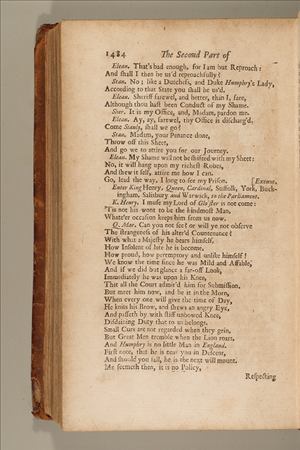 1484 The Second Part of
Elean. That's bad enough, for I am but Reproach:
And shall I then be us'd reproachfully?
Stan. No; like a Dutchess, and Duke Humphry's Lady,
According to that State you shall be us'd.
Elean. Sheriff farewel, and better, than I fare,
Although thou hast been Conduct of my Shame.
Sher. It is my Office, and, Madam, pardon me.
Elean. Ay, ay, farewel, thy Office is discharg'd.
Come Stanly, shall we go?
Stan. Madam, your Penance done,
Throw off this Sheet,
And go we to attire you for our Journey.
Elean. My Shame will not be shifted with my Sheet:
No, it will hang upon my richest Robes,
And shew it self, attire me how I can.
Go, lead the way, I long to see my Prison. [Exeunt.
Enter King Henry, Queen, Cardinal, Suffolk, York, Buck-
ingham, Salisbury and Warwick, to the Parliament.
K. Henry. I muse my Lord of Gloster is not come:
'Tis not his wont to be the hindmost Man,
Whate'er occasion keeps him from us now.
Q. Mar. Can you not see? or will ye not observe
The strangeness of his alter'd Countenance?
With what a Majesty he bears himself,
How Insolent of late he is become,
How proud, how peremptory and unlike himself?
We know the time since he was Mild and Affable,
And if we did but glance a far-off Look,
Immediately he was upon his Knee,
That all the Court admir'd him for Submission.
But meet him now, and be it in the Morn,
When every one will give the time of Day,
He knits his Brow, and shews an angry Eye,
And passeth by with stiff unbowed Knee,
Disdaining Duty that to us belongs.
Small Curs are not regarded when they grin,
But Great Men tremble when the Lion roars,
And Humphry is no little Man in England.
First note, that he is near you in Descent,
And should you fall, he is the next will mount.
Me seemeth then, it is no Policy,
Respecting